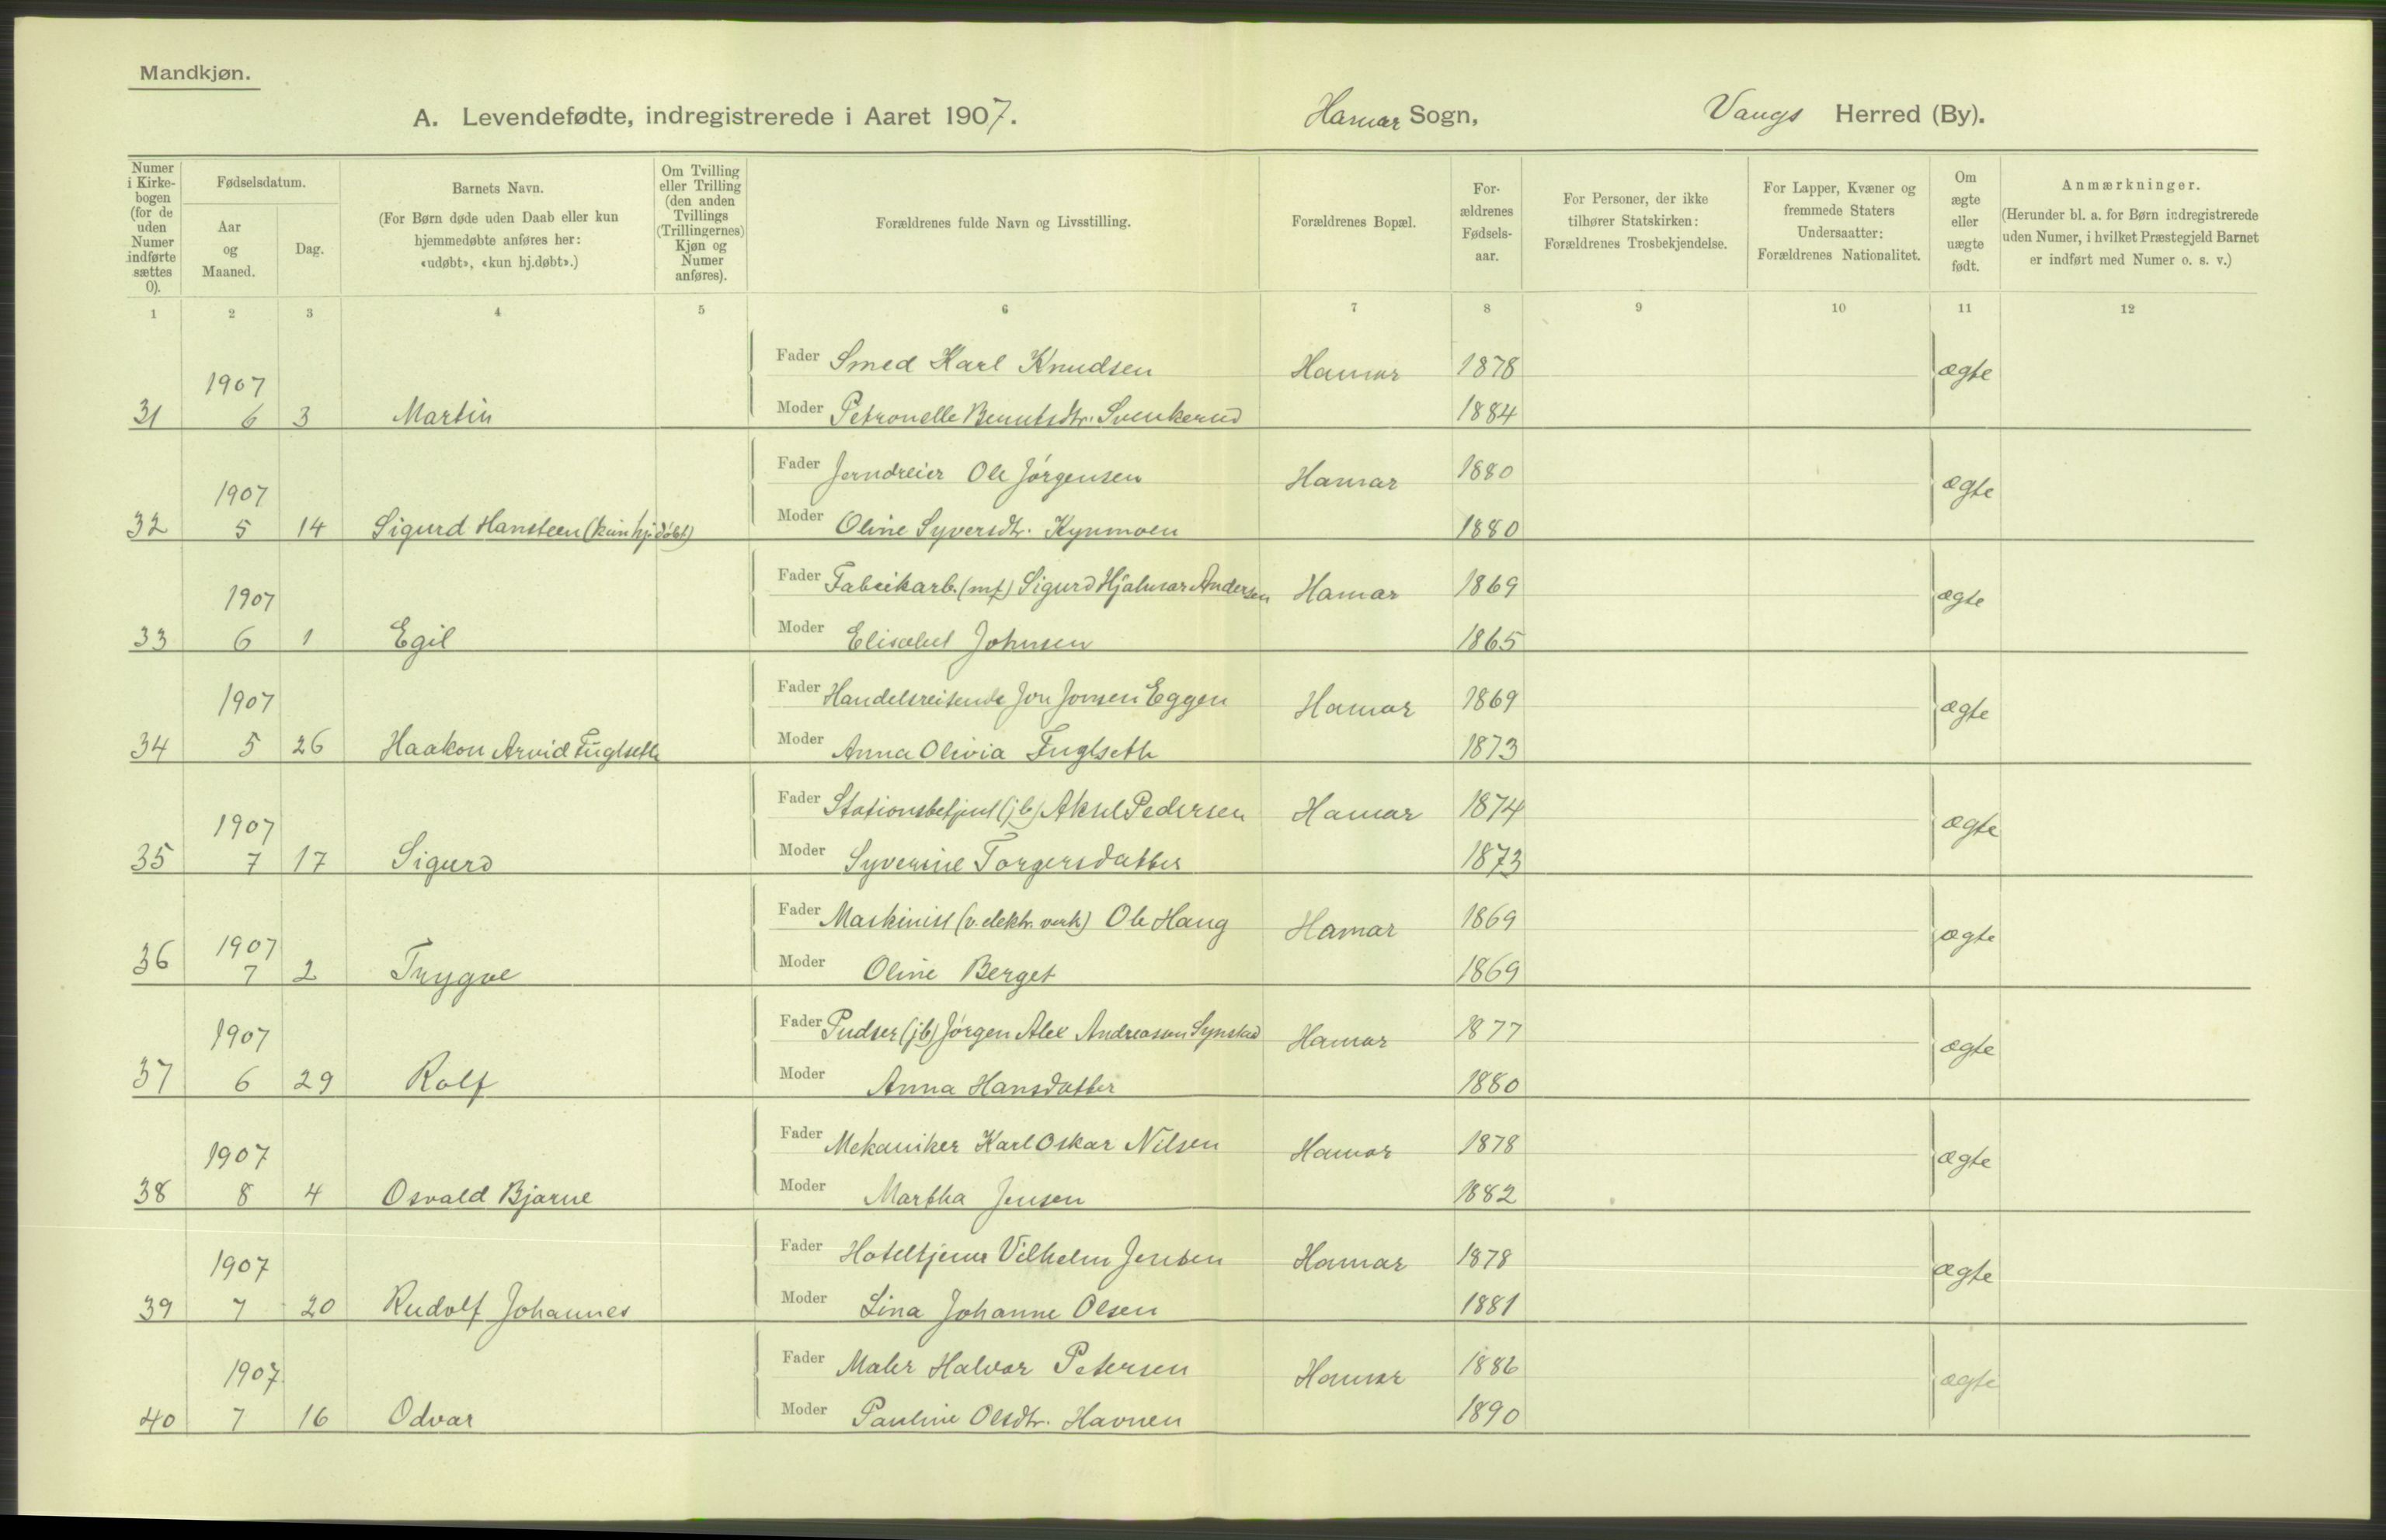 Mandkjøn.
A. Levendefødte, indregistrerede i Aaret 1907. Hamar Sogn, Vangs Herred (By).
Numer i Kirkebogen (for de uden Numer indførte sættes 0).
Fødselsdatum.
Aar og Maaned.
Dag.
Barnets Navn.
(For Børn døde uden Daab eller kun hjemmedøbte anføres her: «udøbt», «kun hj.døbt».)
Om Tvilling eller Trilling (den anden Tvillings (Trillingernes) Kjøn og Numer anføres).
Forældrenes fulde Navn og Livsstilling.
Forældrenes Bopæl.
Forældrenes Fødselsaar.
For Personer, der ikke tilhører Statskirken: Forældrenes Trosbekjendelse.
For Lapper, Kvæner og fremmede Staters Undersaatter: Forældrenes Nationalitet.
Om ægte eller uægte født.
Anmærkninger.
(Herunder bl. a. for Børn indregistrerede uden Numer, i hvilket Præstegjeld Barnet er indført med Numer o. s. v.)
1 2 3 4 5 6 7 8 9 10 11 12
Fader Smed Karl Knudsen Hamar 1878 ægte
1907
31 6 3 Martin Moder Petronelle Berntsdtr. Svenkerud 1884
Fader Jerndreier Ole Jörgensen Hamar 1880 ægte
1907
32 5 14 Sigurd Hansteen (kun hj.döbt) Moder Oline Syversdtr. Kynmoen 1880
Fader Fabrikarb. (mf) Sigurd Hjalmar Andersen Hamar 1869 ægte
1907
33 6 1 Egil Moder Elisabet Johnsen 1865
Fader Handelsreisende Jon Jonsen Eggen Hamar 1869 ægte
1907
34 5 26 Haakon Arvid Fuglseth Moder Anna Olivia Fuglseth 1873
Fader Stationsbetjent (jb) Aksel Pedersen Hamar 1874 ægte
1907
35 7 17 Sigurd Moder Syverine Torgersdatter 1873
Fader Maskinist (v. elektr. verk) Ole Haug Hamar 1869 ægte
1907
36 7 2 Trygve Moder Oline Berget 1869
Fader Pudser (jb) Jörgen Alex Andreassen Synstad Hamar 1877 ægte
1907
37 6 29 Rolf Moder Anna Hansdatter 1880
Fader Mekaniker Karl Oskar Nilsen Hamar 1878 ægte
1907
38 8 4 Osvald Bjarne Moder Martha Jensen 1882
Fader Hoteltjener Vilhelm Jensen Hamar 1878 ægte
1907
39 7 20 Rudolf Johannes Moder Lina Johanne Olsen 1881
Fader Maler Halvor Petersen Hamar 1886 ægte
1907
40 7 16 Odvar Moder Pauline Olsdtr. Havnen 1890